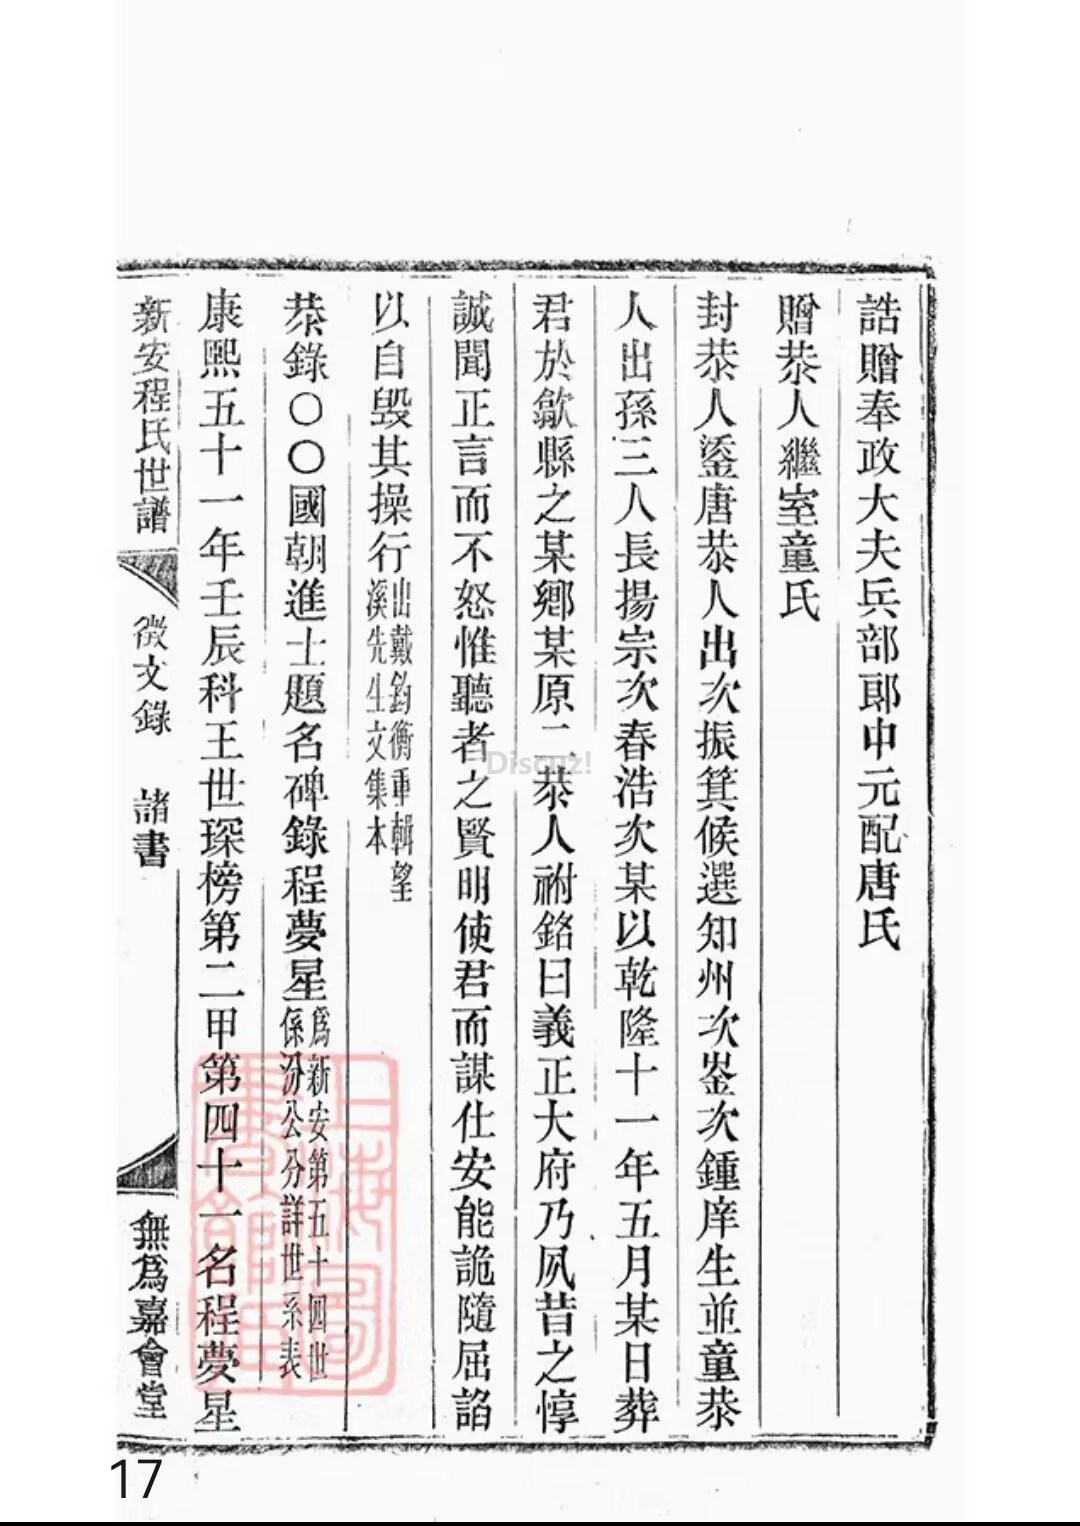 誥贈奉政大夫兵部郎中元配唐氏
贈恭人繼室童氏
封恭人鋈唐恭人出次振箕候選知州次崟次鍾庠生並童恭
人出孫三人長揚宗次春浩次某以乾隆十一年五月某日葬
君於歙縣之某鄉某原二恭人祔銘曰義正大府乃夙昔之惇
誠聞正言而不怒惟聽者之賢明使君而謀仕安能詭隨屈諂
以自毀其操行山戴鈞衡重輯望溪先生文集本
恭錄〇〇國朝進士題名碑錄程夢星爲新安第五十四世係汾公分詳世系表
康熙五十一年壬辰科王世琛榜第二甲第四十一名程夢星
新安程氏世譜 徵文錄 諸書 無爲嘉會堂
上海圖書館藏
Discuz!
17